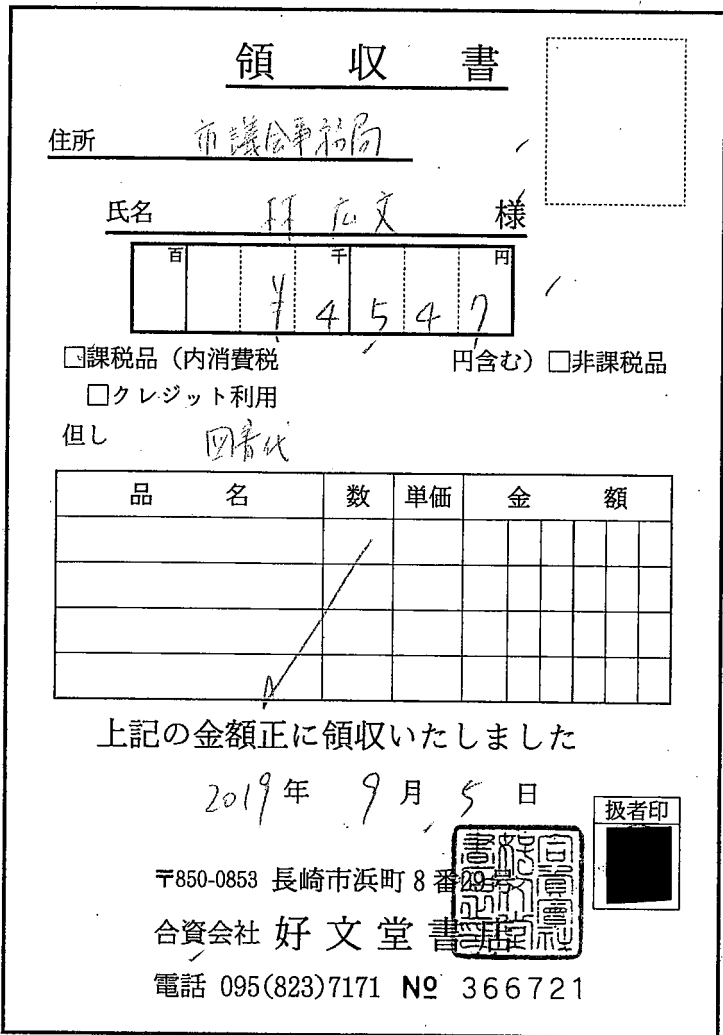 領収書
住所 市議会事務局
氏名 林広文 様
百 千 円
¥4547
□課税品（内消費税 円含む）□非課税品
□クレジット利用
但し 図書代
品名 数 単価 金額
上記の金額正に領収いたしました
2019年 9月 5日
扱者印
〒850-0853 長崎市浜町8番29号
合資会社 好文堂書店
電話 095(823)7171 No 366721